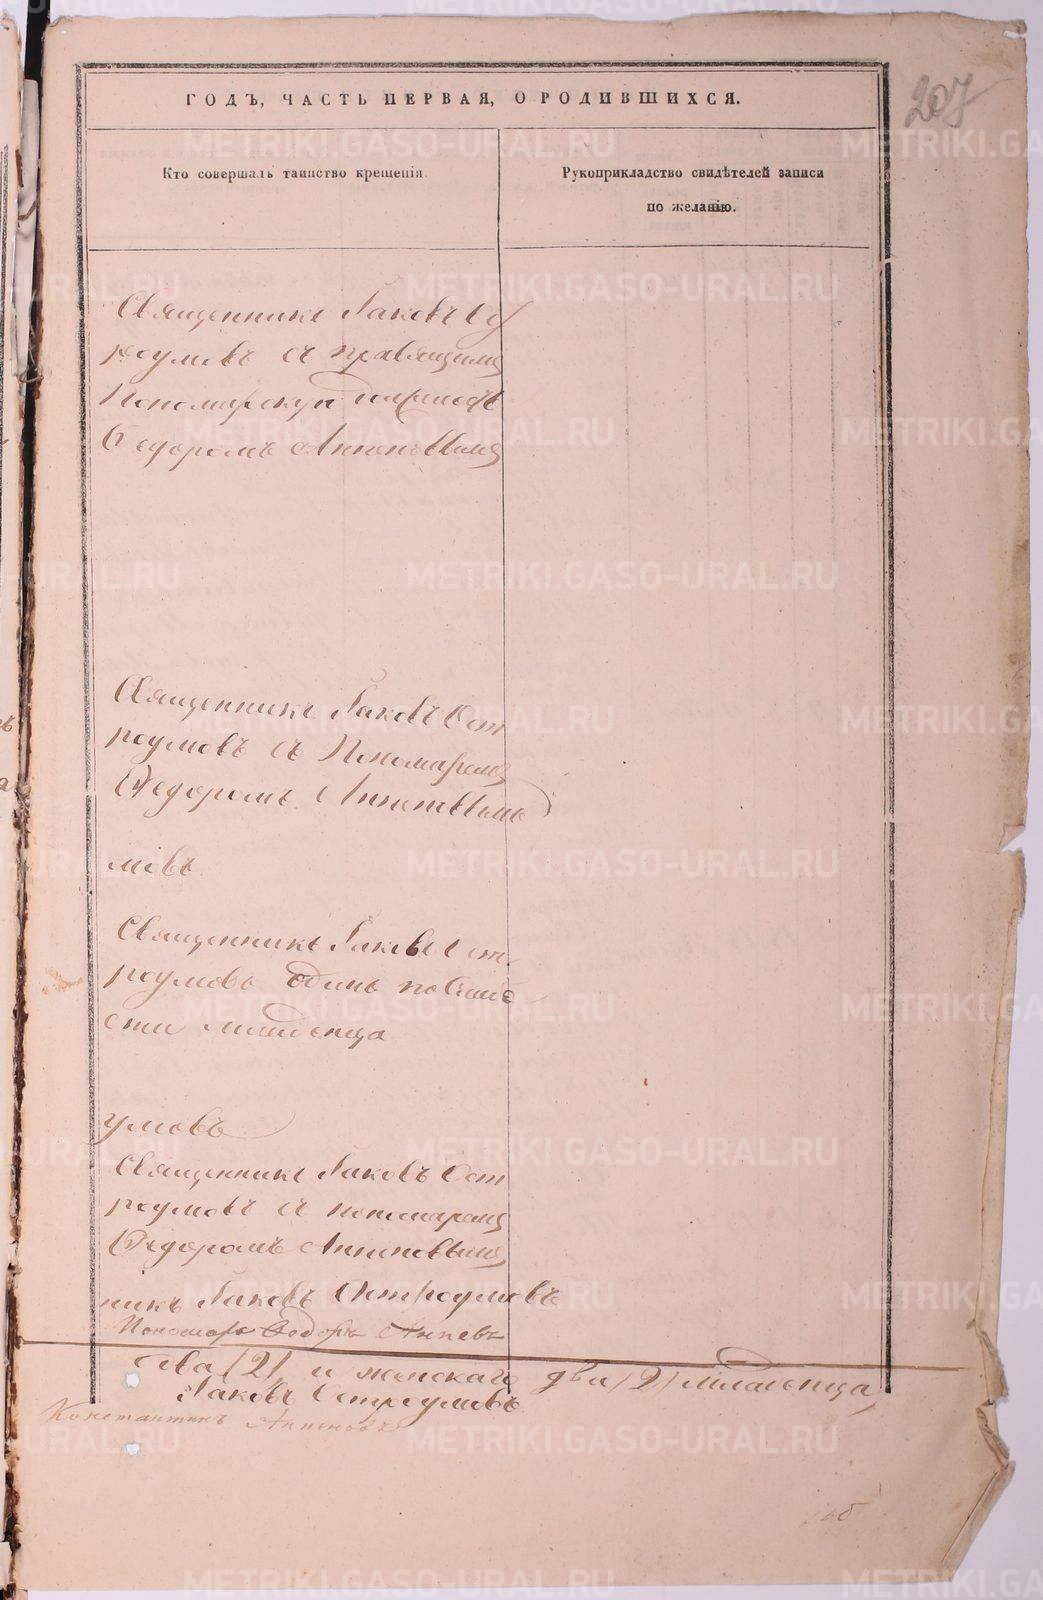 207
ГОДЪ, ЧАСТЬ ПЕРВАЯ, О РОДИВШИХСЯ.
Кто совершалъ таинство крещенія.
Рукоприкладство свидѣтелей записи
по желанію.
Священникъ Іаковъ Ост
роумовъ съ правящимъ
Пономарскую должность
Ѳедоромъ Аннено́вымъ
Священникъ Іаковъ Ост
роумовъ съ Пономаремъ
Ѳедоромъ Анненовымъ
мовъ
Священникъ Іаковъ Ост
роумовъ одинъ по слабо
сти младенца
умовъ
Священникъ Іаковъ Ост
роумовъ съ пономаремъ
Ѳедоромъ Анненовымъ
никъ Іаковъ Остроумовъ
Пономарь Ѳедоръ
два (2) и женскаго два (2) младенца
Іаковъ Остроумовъ
Константинъ
METRIKI.GASO-URAL.RU